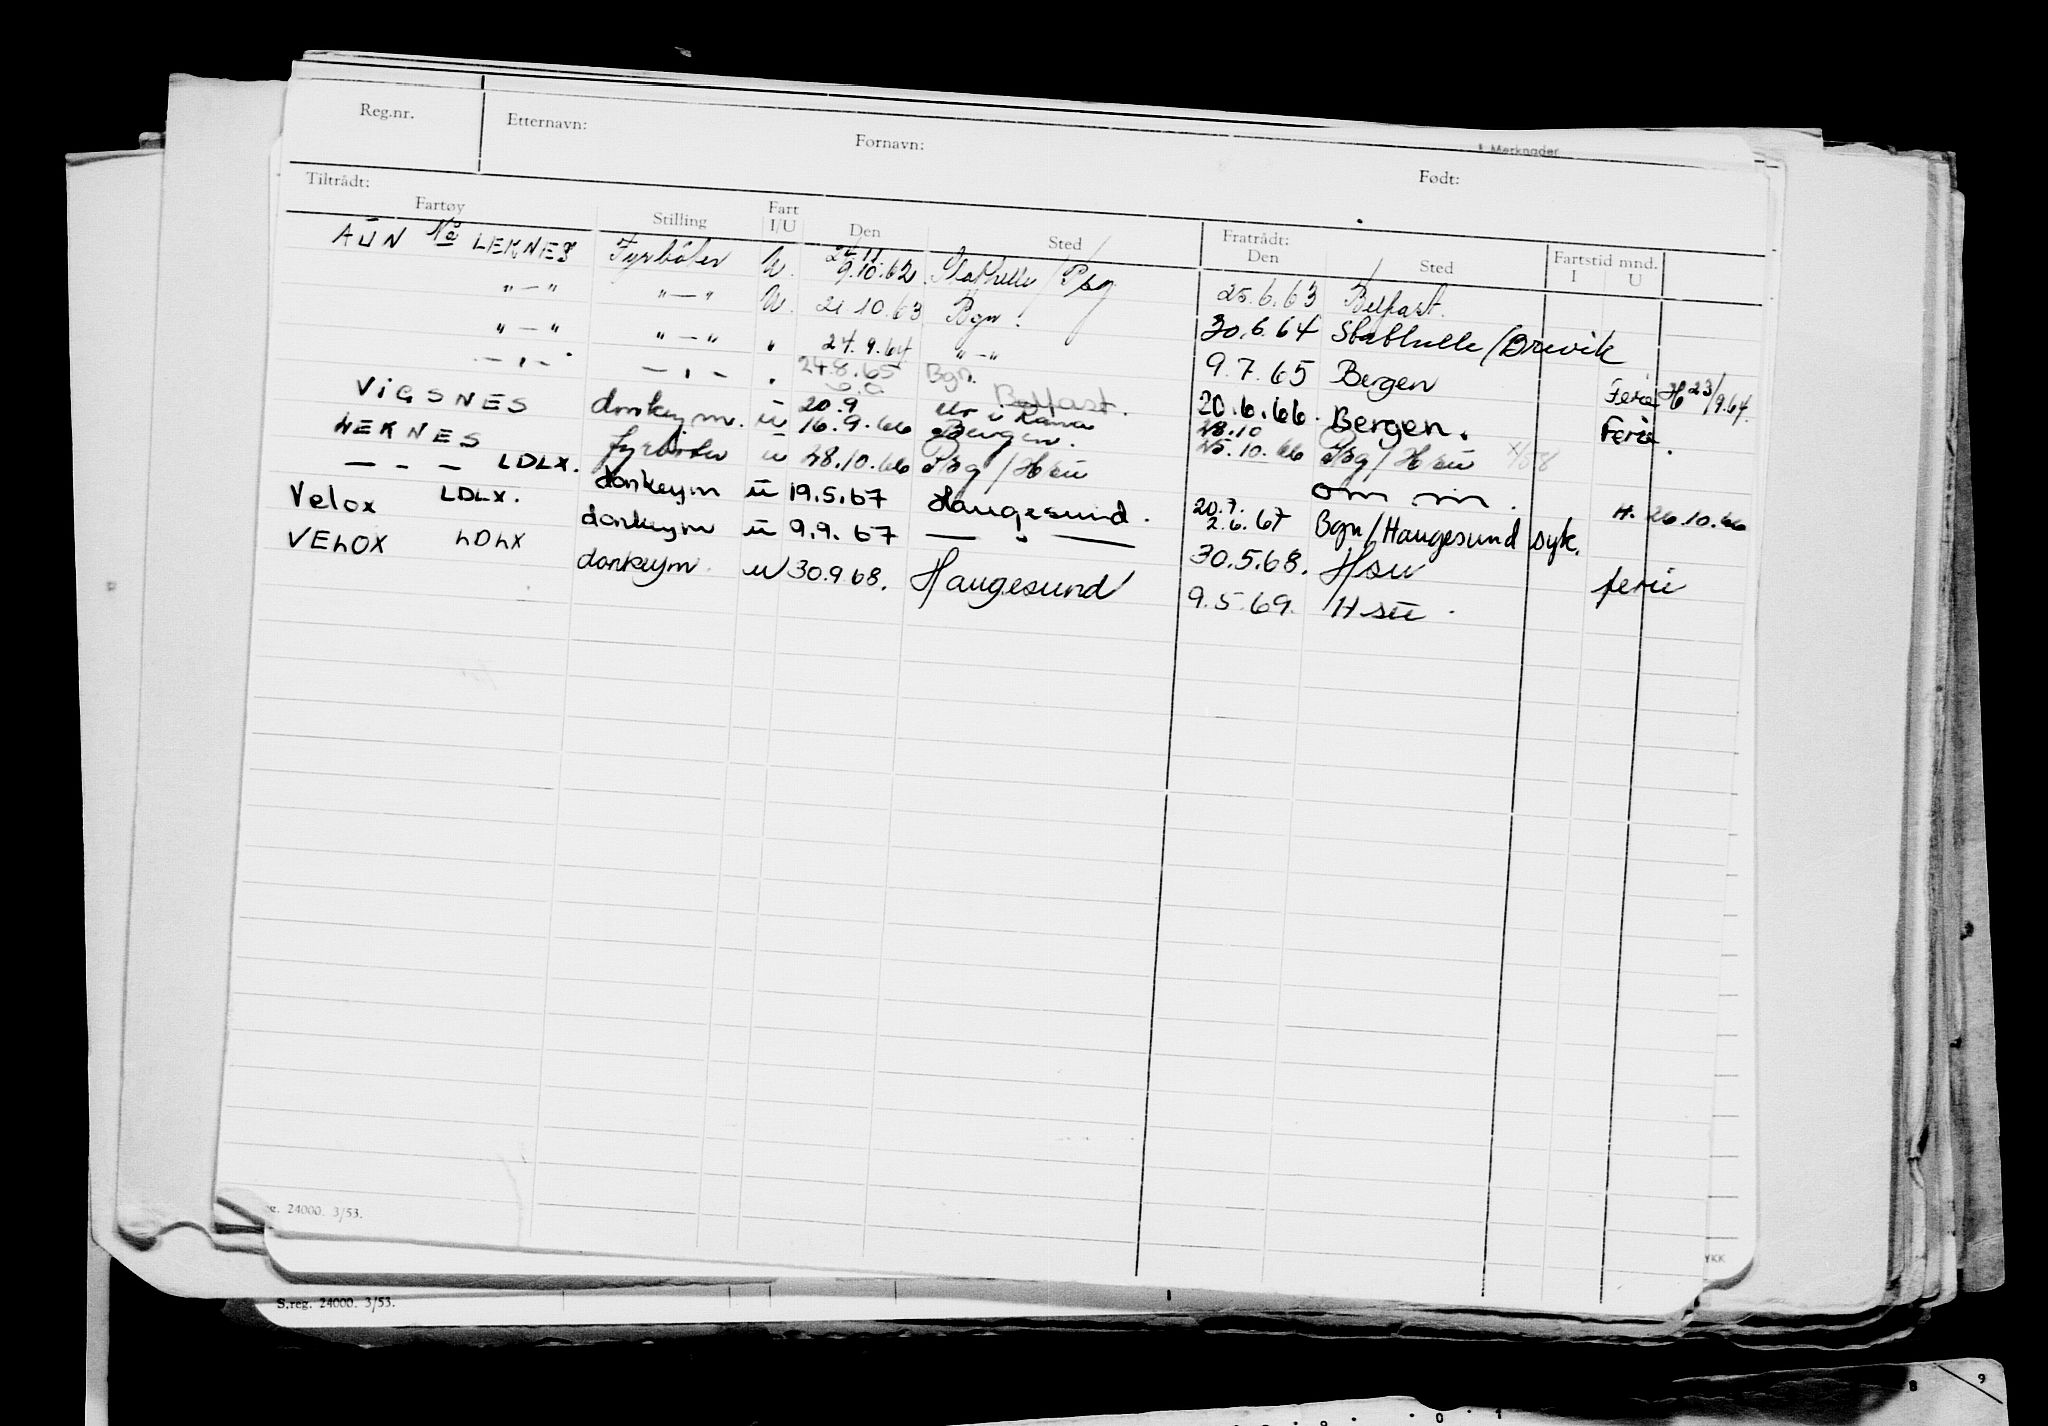 Reg.nr. Etternavn: Fornavn: Født:
Merknader
Tiltrådt: Fratrådt:
Fartøy Stilling Fart I/U Den Sted Den Sted Fartstid mnd. I U
AUN Nå LEKNES Fyrbøter U. 24.11 9.10.62 Stathelle/Psg 25.6.63 Belfast.
" — " " — " U. 21.10.63 Bgn. 30.6.64 Stathelle/Brevik
" — " " — " " 24.9.64 " — " 9.7.65 Bergen Ferie H 23/9.64.
— " — — " — " 24.8.65 Bgn. Belfast. 20.6.66. Bergen. Ferie.
VIGSNES donkeym. u 20.9 16.9.66 Mo i Rana Bergen. 28.10 25.10.66 Psg/Hsu
LEKNES fyrbøter u 28.10.66 Psg/Hsu om m. H. 26.10.66
— - — LDLX. donkeym u 19.5.67 Haugesund. 20.7. 2.6.67 Bgn/Haugesund syk.
Velox LDLX. donkeym u 9.9.67 — " — 30.5.68. Hsu ferie
VELOX LDLX donkeym. u 30.9.68. Haugesund 9.5.69. Hsu.
24000. 3/53.
YKK
S.reg. 24000. 3/53.
8 9